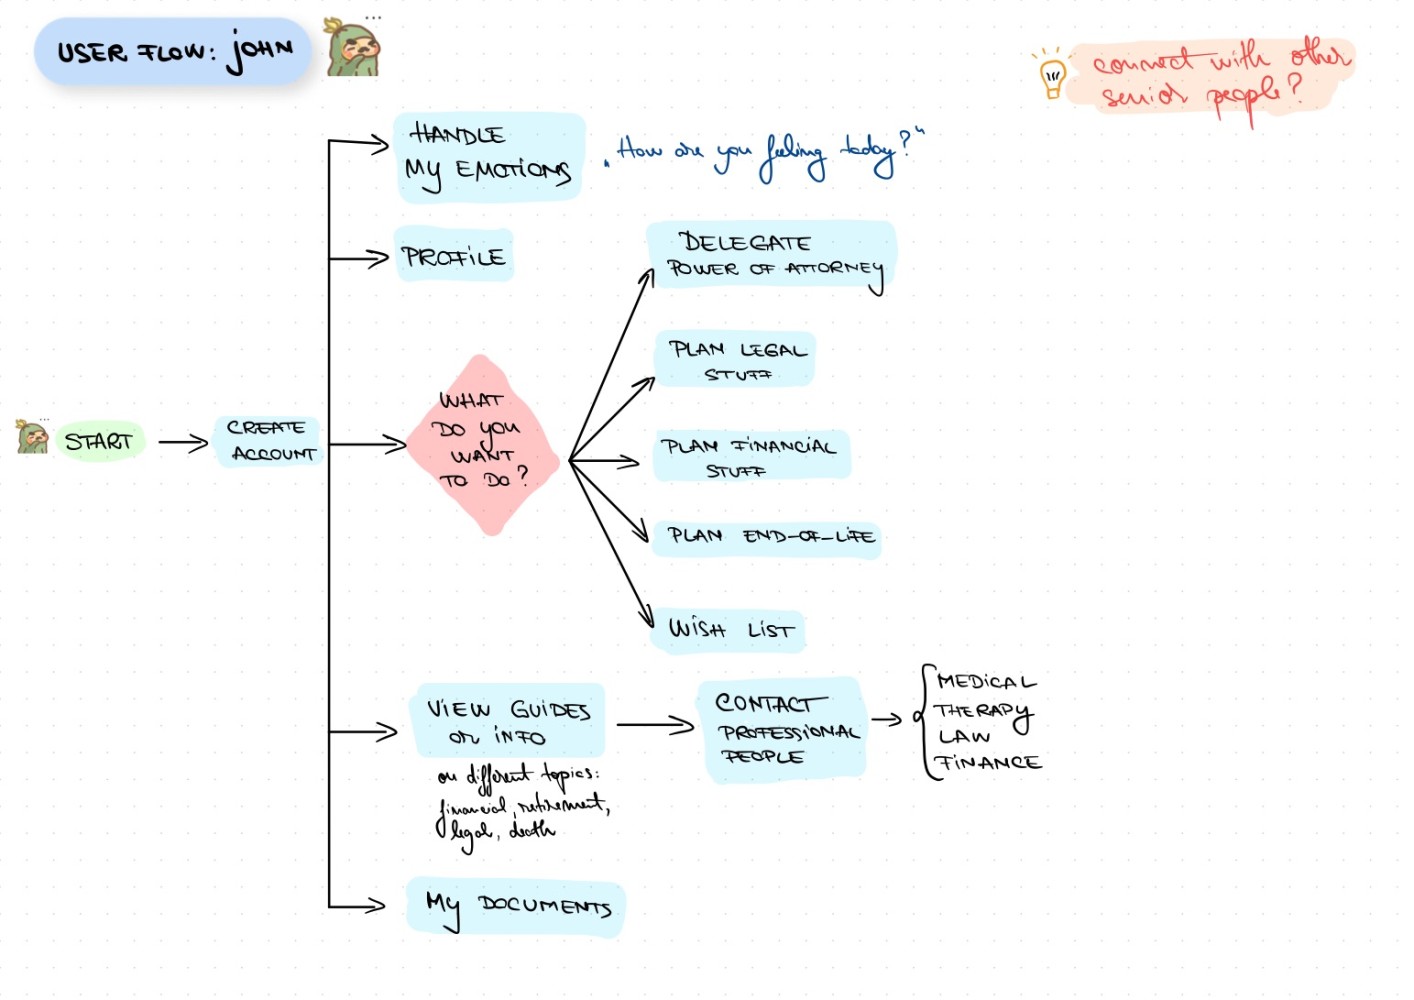 USER FLOW: JOHN
connect with other
senior people?
HANDLE
MY EMOTIONS
„How are you feeling today?"
PROFILE
DELEGATE
POWER OF ATTORNEY
PLAN LEGAL
STUFF
WHAT
DO YOU
WANT
TO DO?
START
CREATE
ACCOUNT
PLAN FINANCIAL
STUFF
PLAN END-OF-LIFE
WISH LIST
VIEW GUIDES
or INFO
on different topics:
financial, retirement,
legal, death
CONTACT
PROFESSIONAL
PEOPLE
MEDICAL
THERAPY
LAW
FINANCE
MY DOCUMENTS